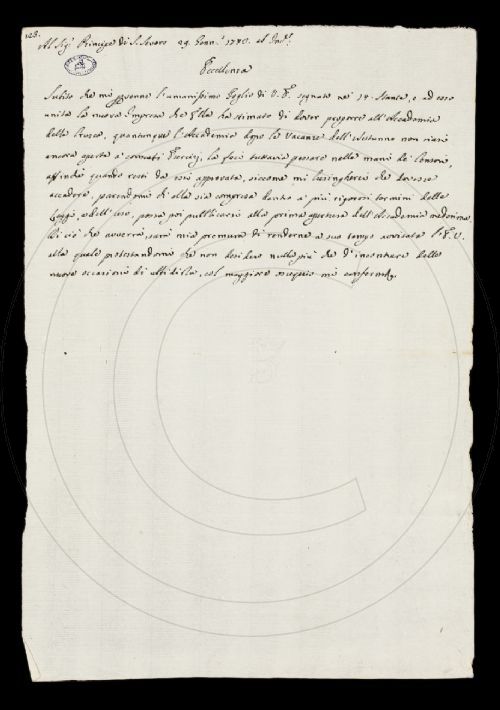 128.
Al Sig.r Principe di S. Severo 29. Genn.o 1750.
Eccellenza
Subito che mi pervenne l'umanissimo foglio di V. E. segnato ne' 14. stante, e ad esso
unita la nuova Impresa che Ella ha stimato di dover proporre all'Accademia
della Crusca, quantunque l'Accademia dopo le Vacanze dell'Autunno non siasi
ancora aperta a' consueti Esercizj, la feci tuttavia passare nelle mani de' Censori,
affinché quando resti da essi approvata, siccome mi lusingherei che dovesse
accadere, parendomi ch'ella sia compresa dentro a' più rigorosi termini delle
Leggi, e dell'Uso, possa poi pubblicarsi alla prima apertura dell'Accademia medesima.
Di ciò che avverrà, sarà mia premura di renderne a suo tempo avvisata l'E. V.
alla quale protestandomi che non desidero nulla più che d'incontrare delle
nuove occasioni di ubbidirla, col maggiore ossequio mi confermo